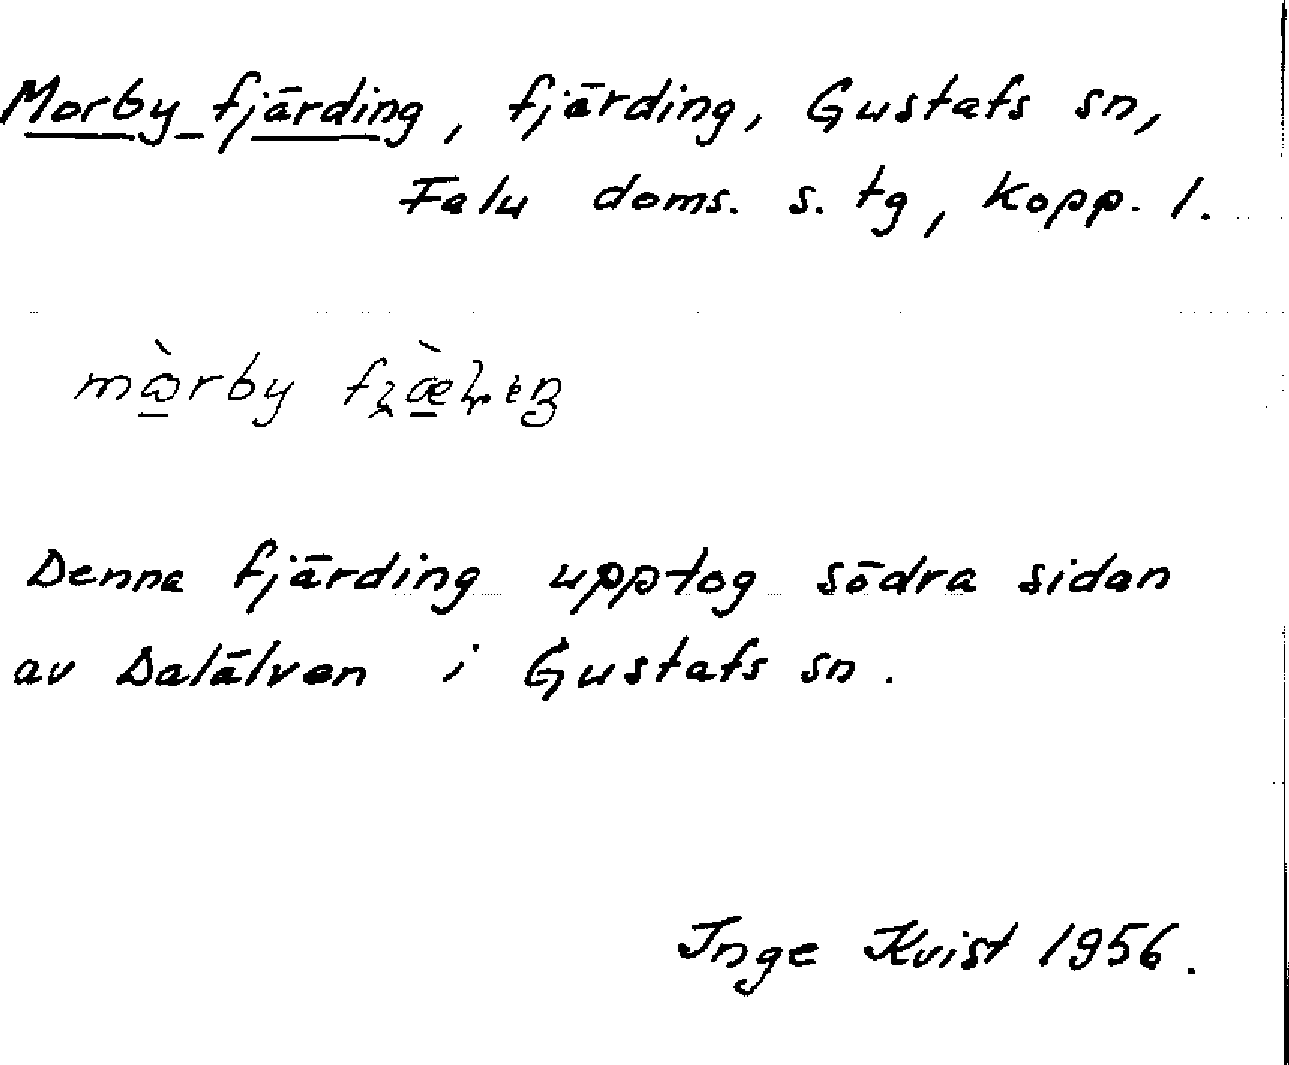 Morby fjärding, fjärding, Gustafs sn,
Falu doms. s. tg, Kopp. l.
Denna fjärding upptog södra sidan
av Dalälven i Gustafs sn.
Inge Kvist 1956.